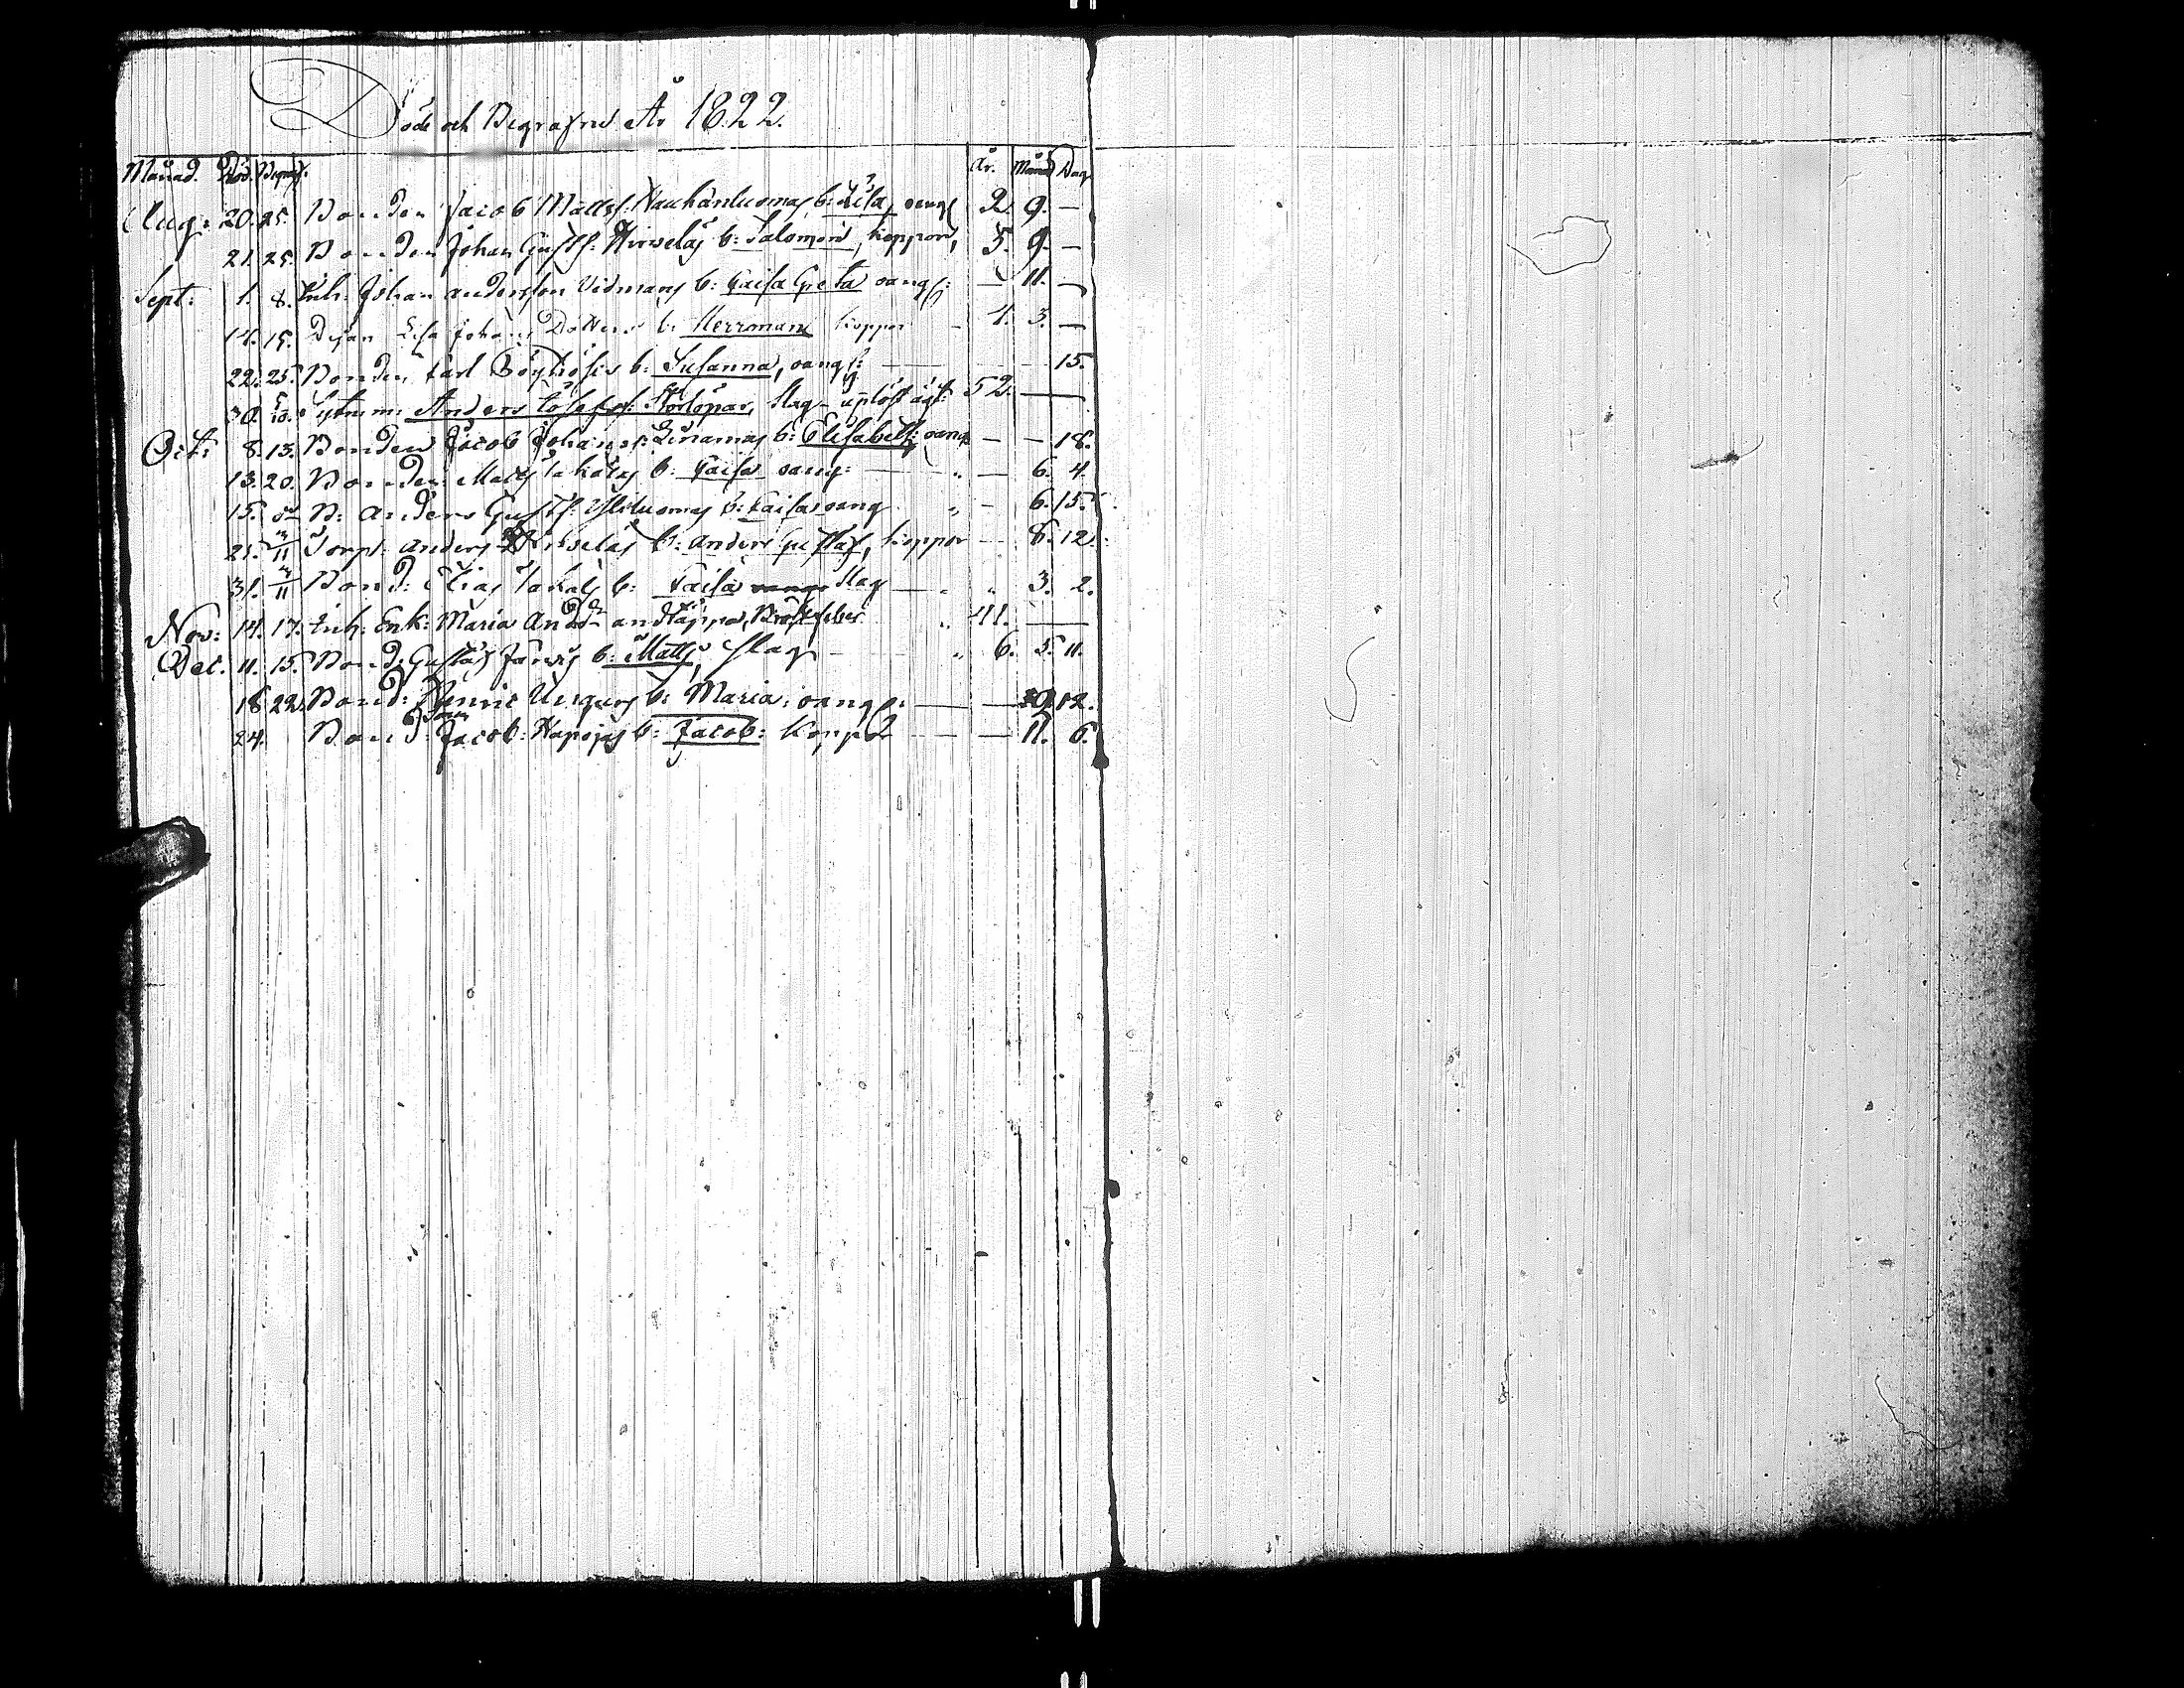 Döde och Begrafne År 1822.
Månad. Död. Begraf. År. Månad Dag
Aug: 20. 25. Bonden Jacob Mattss: Nauhanluomas b: Lisa, oangf 2. 9. —
21. 25. Bonden Johan Gustfs: Hirvelas b: Salomon, koppor, 5. 9. —
Sept: 1. 8. Inh: Johan Andersson Vidmans b: Caisa Greta oangf: — 11. —
14. 15. Lisa Johans Dotters b: Herrman koppor — 1. 3. —
22. 25. Bonden Carl b: Susanna, oangf: — — 15.
30. Anders slag 52. — —
Oct: 8. 13. Bonden Jacob Johanss: b: Elisabeth: oangf — — 18.
13. 20. Bonden Matts b: Caisa oangf: — — 6. 4.
15. B: Anders Gustfs: b: Caisa oangf — 6. 15.
21. 3/11 Torp: Anders Hirvelas b: Anders Gustaf, koppor — 8. 12.
31. 3/11 Bond: Elias b: Caisa slag — 3. 2.
Nov: 14. 17. Inh: Enk: Maria And: Dr Bröstfeber 41. —
Dec. 11. 15. Bond: Gustaf Järvis b: Matts, slag — 6. 5. 11.
18 22. Bond: Henric Ungars b: Maria: oangf: — — 12.
24. Bond: Jacob: Napojas b: Jacob: Koppor — — 11. 6.